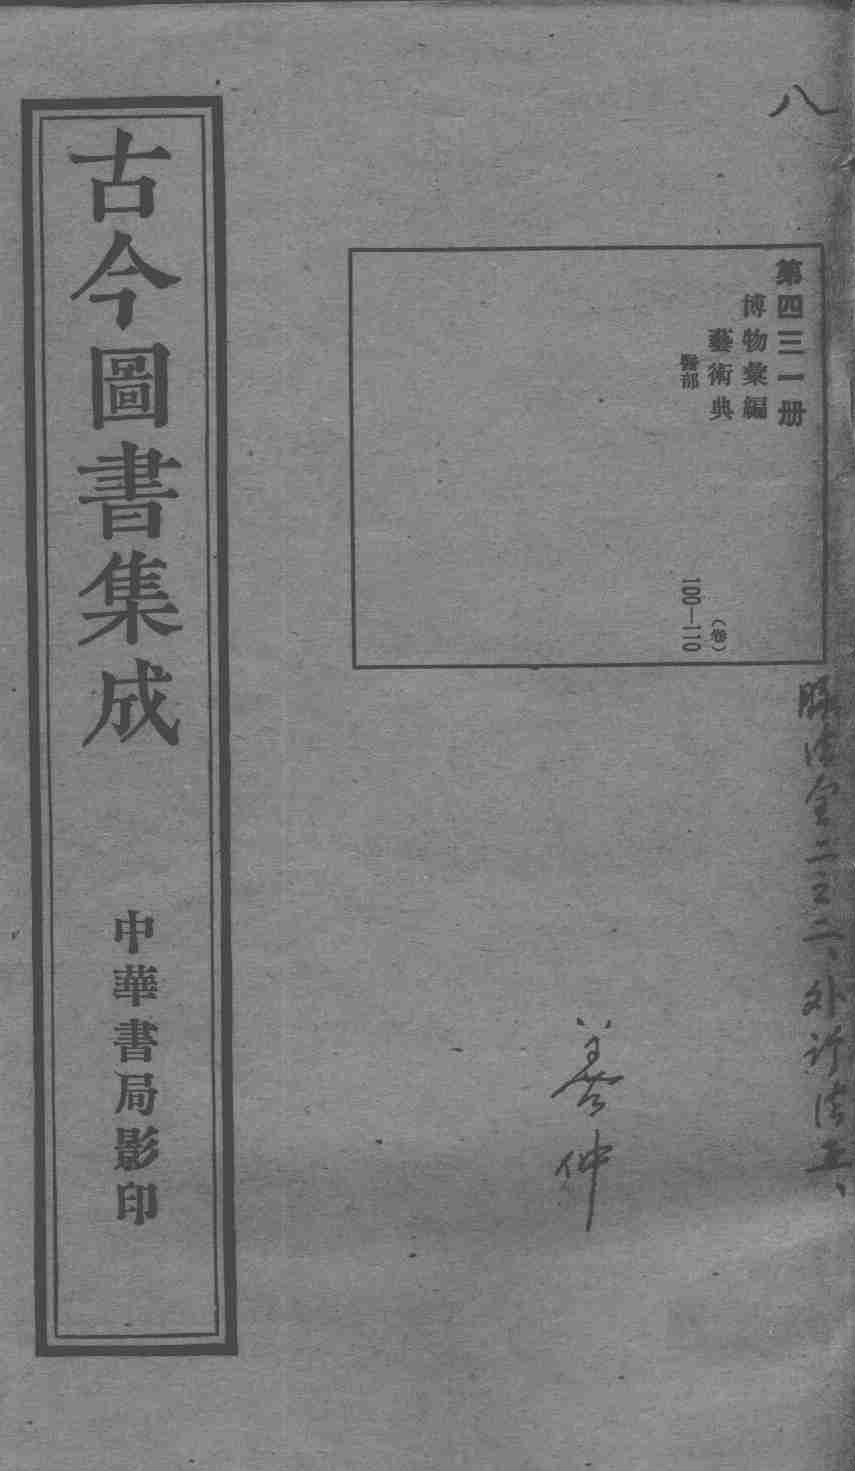 八
第四三一册
博物彙編
藝術典
醫部
(卷)
100—110
外診法五、
善仲
古今圖書集成
中華書局影印